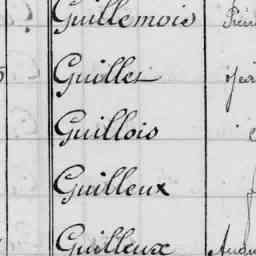 Guillemois
Guilles
Guillois
Guilleux
Guilleux